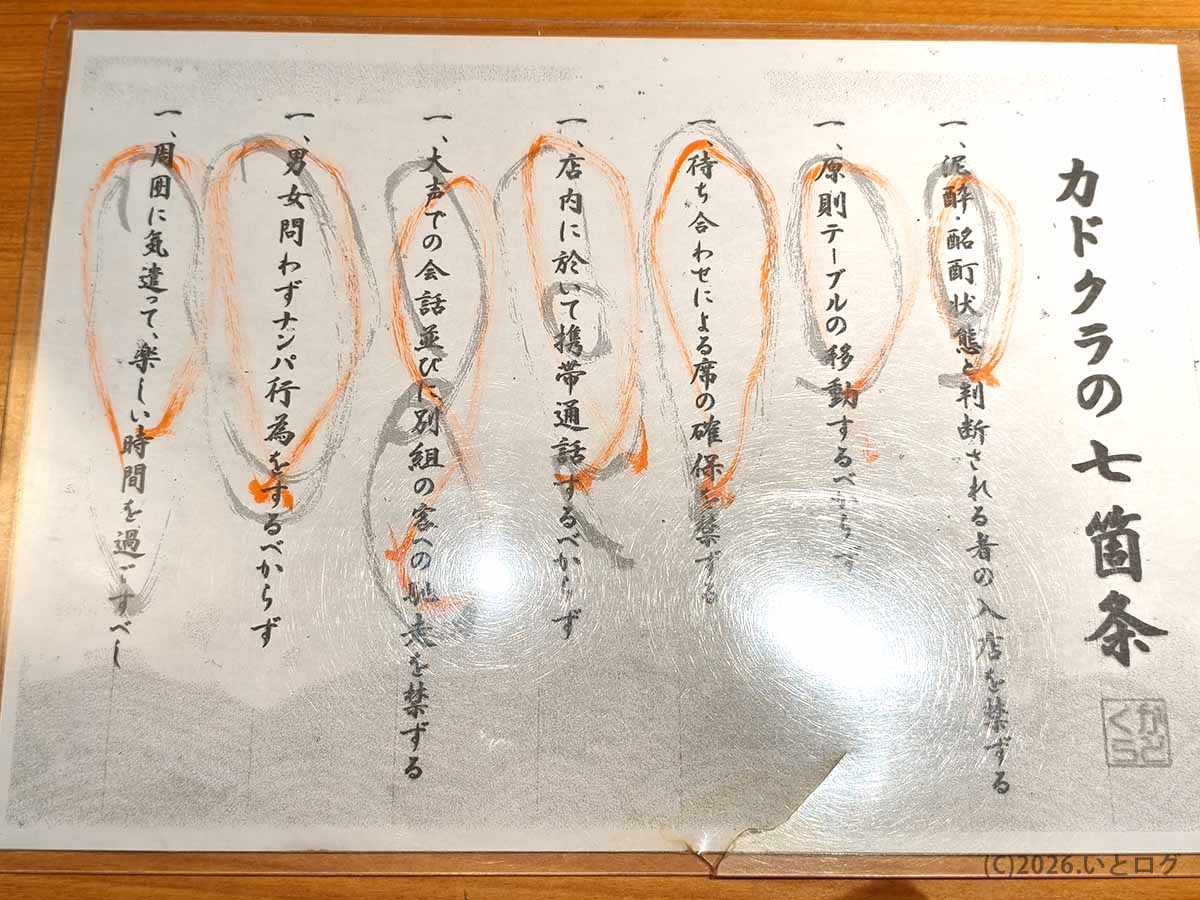 カドクラの七箇条
かどくら
一、泥酔・酩酊状態と判断される者の入店を禁ずる
一、原則テーブルの移動するべからず
一、待ち合わせによる席の確保を禁ずる
一、店内に於いて携帯通話するべからず
一、大声での会話並びに別組の客への
を禁ずる
一、男女問わずナンパ行為をするべからず
一、周囲に気遣って、楽しい時間を過ごすべし
(C)2026.いとログ